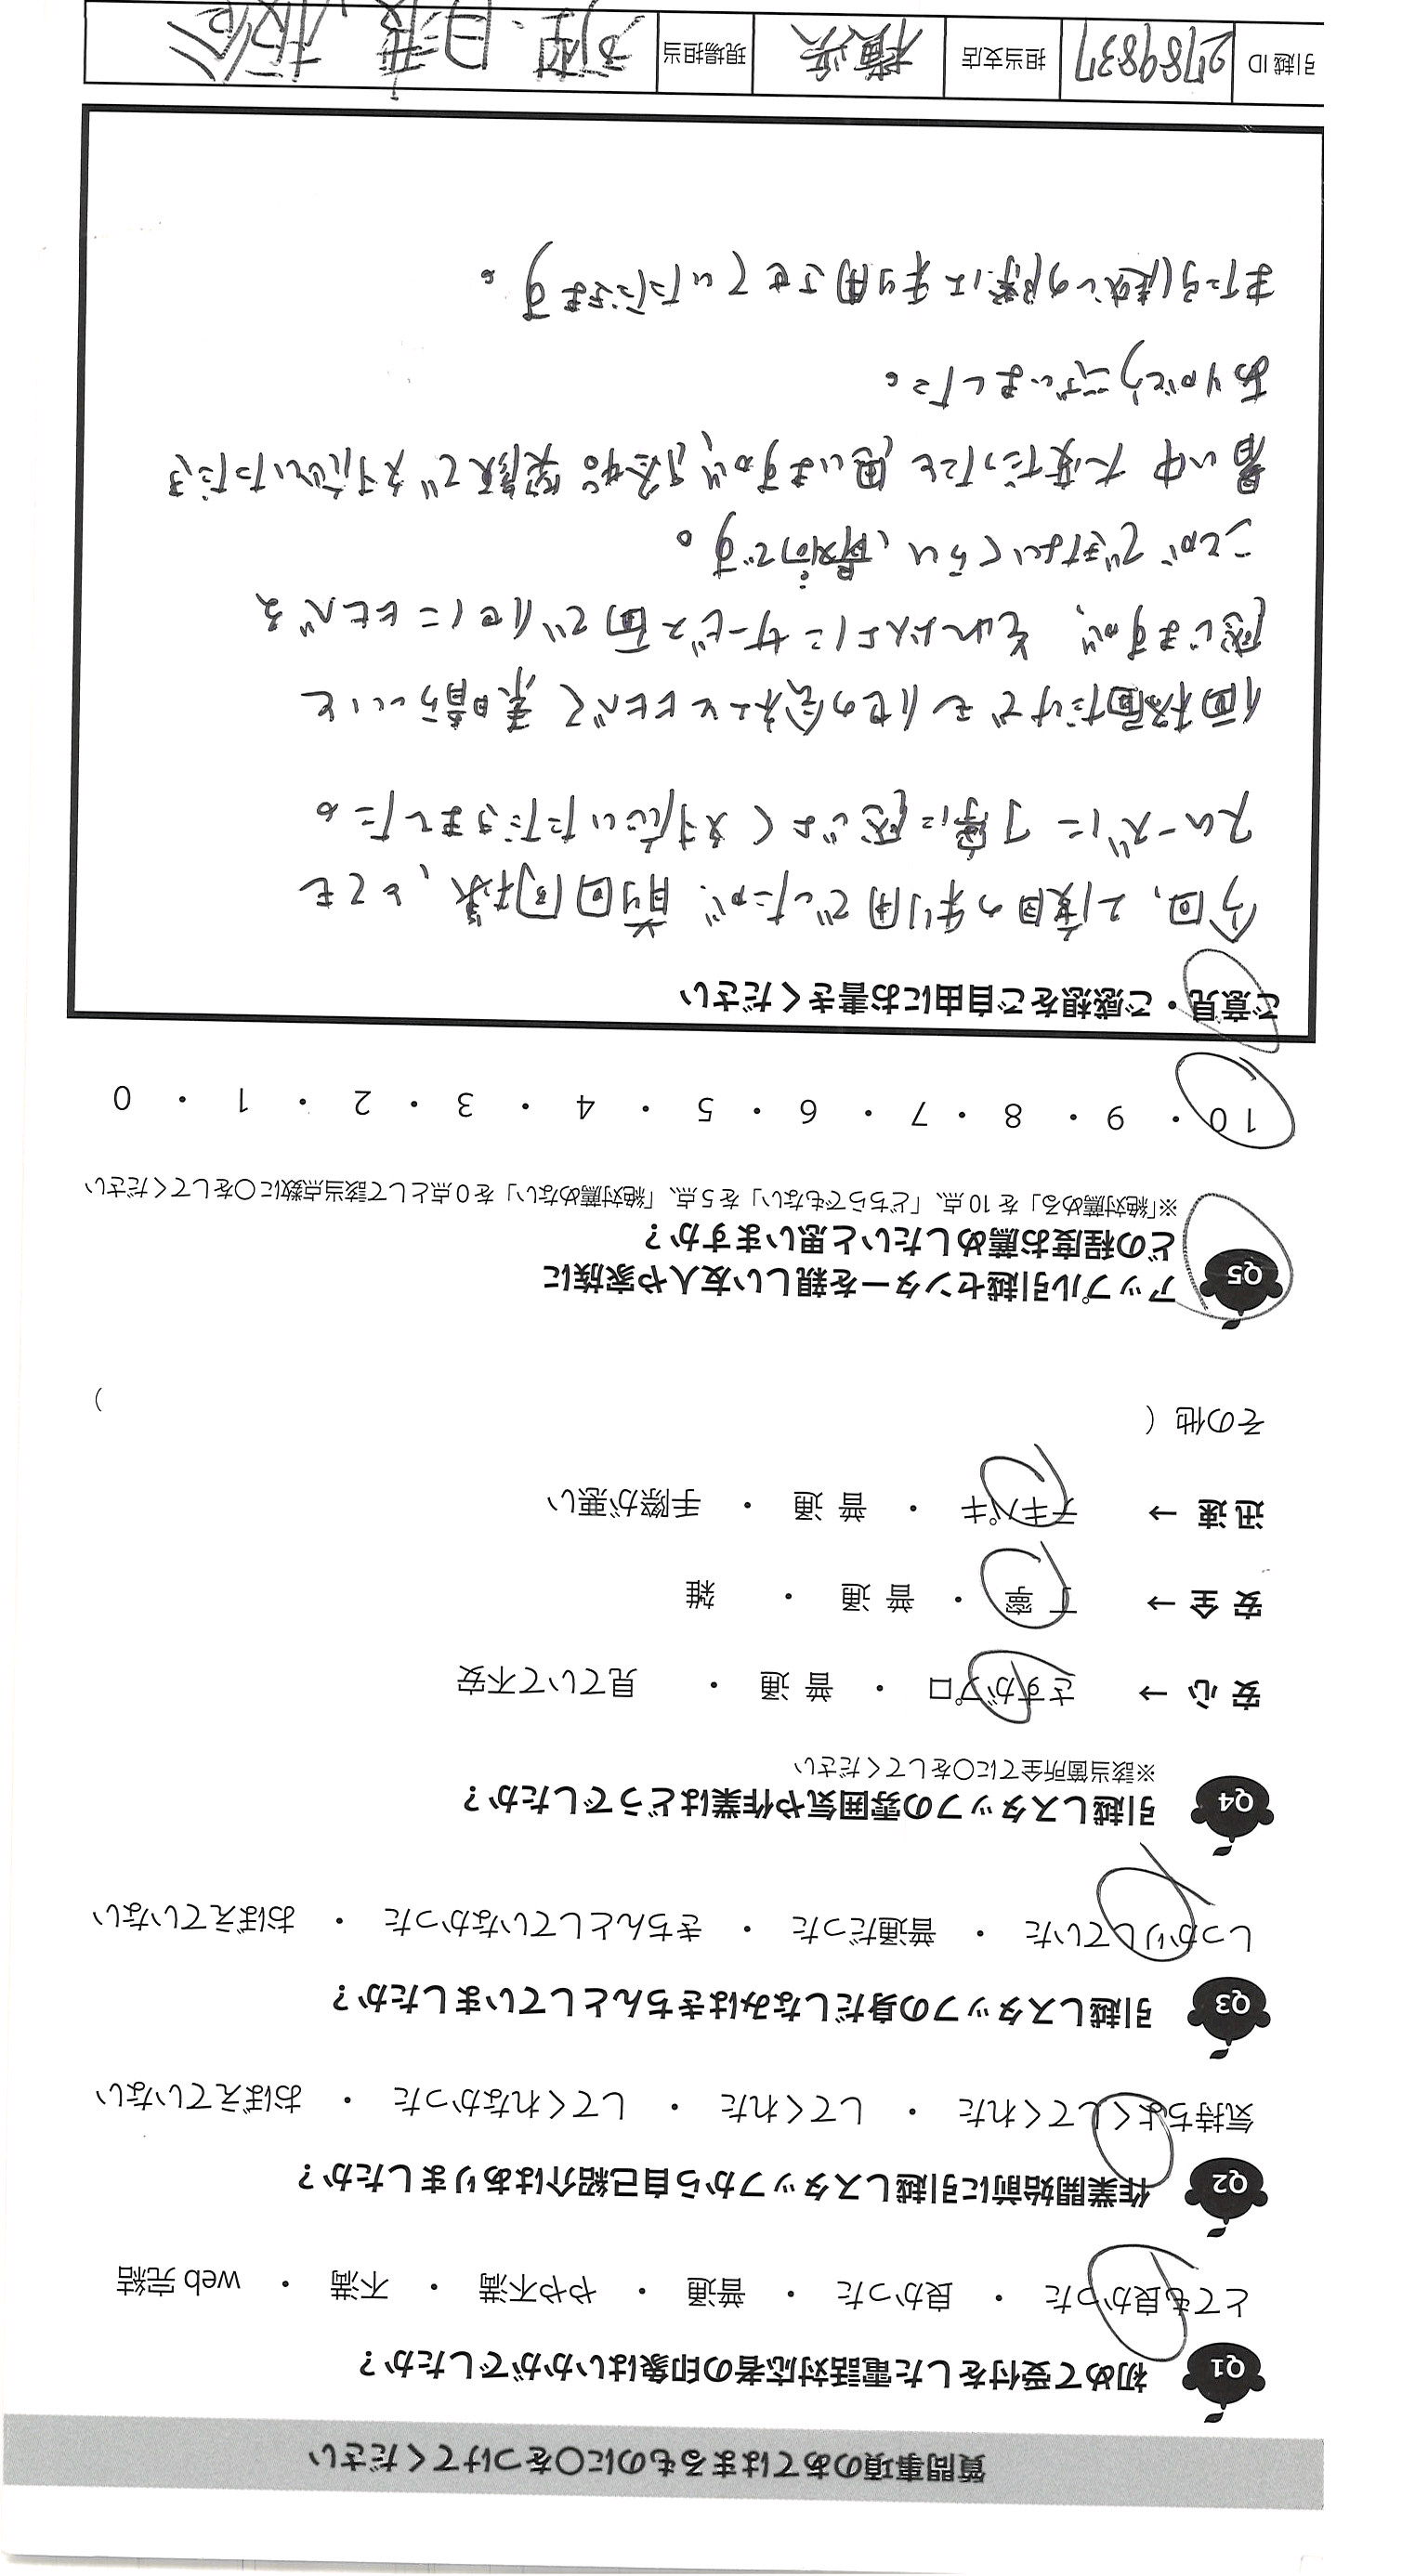 質問事項のあてはまるものに〇をつけてください
Q1 初めて受付をした電話対応者の印象はいかがでしたか？
とても良かった ・ 良かった ・ 普通 ・ やや不満 ・ 不満 ・ web 完結
Q2 作業開始前に引越しスタッフから自己紹介はありましたか？
気持ちよくしてくれた ・ してくれた ・ してくれなかった ・ おぼえていない
Q3 引越しスタッフの身だしなみはきちんとしていましたか？
しっかりしていた ・ 普通だった ・ きちんとしていなかった ・ おぼえていない
Q4 引越しスタッフの雰囲気や作業はどうでしたか？
※該当箇所全てに〇をしてください
安 心 → さすがプロ ・ 普 通 ・ 見ていて不安
安 全 → 丁 寧 ・ 普 通 ・ 雑
迅 速 → テキパキ ・ 普 通 ・ 手際が悪い
その他（ ）
Q5 アップル引越センターを親しい友人や家族に
どの程度お薦めしたいと思いますか？
※「絶対薦める」を 10 点、「どちらでもない」を 5 点、「絶対薦めない」を 0 点として該当点数に〇をしてください
10 ・ 9 ・ 8 ・ 7 ・ 6 ・ 5 ・ 4 ・ 3 ・ 2 ・ 1 ・ 0
ご意見・ご感想をご自由にお書きください
今回、2度目の利用でしたが、前回同様、とても
スムーズに丁寧に感じよく対応いただきました。
価格面だけでも他の会社と比べて素晴らしいと
感じますが、それ以上にサービス面で他に比べる
ことができないくらい、最高です。
暑い中大変だったと思いますが、絶えず笑顔で対応いただき
ありがとうございました。
また引越しの際は利用させていただきます。
引越 ID 2789837 担当支店 横浜 現場担当